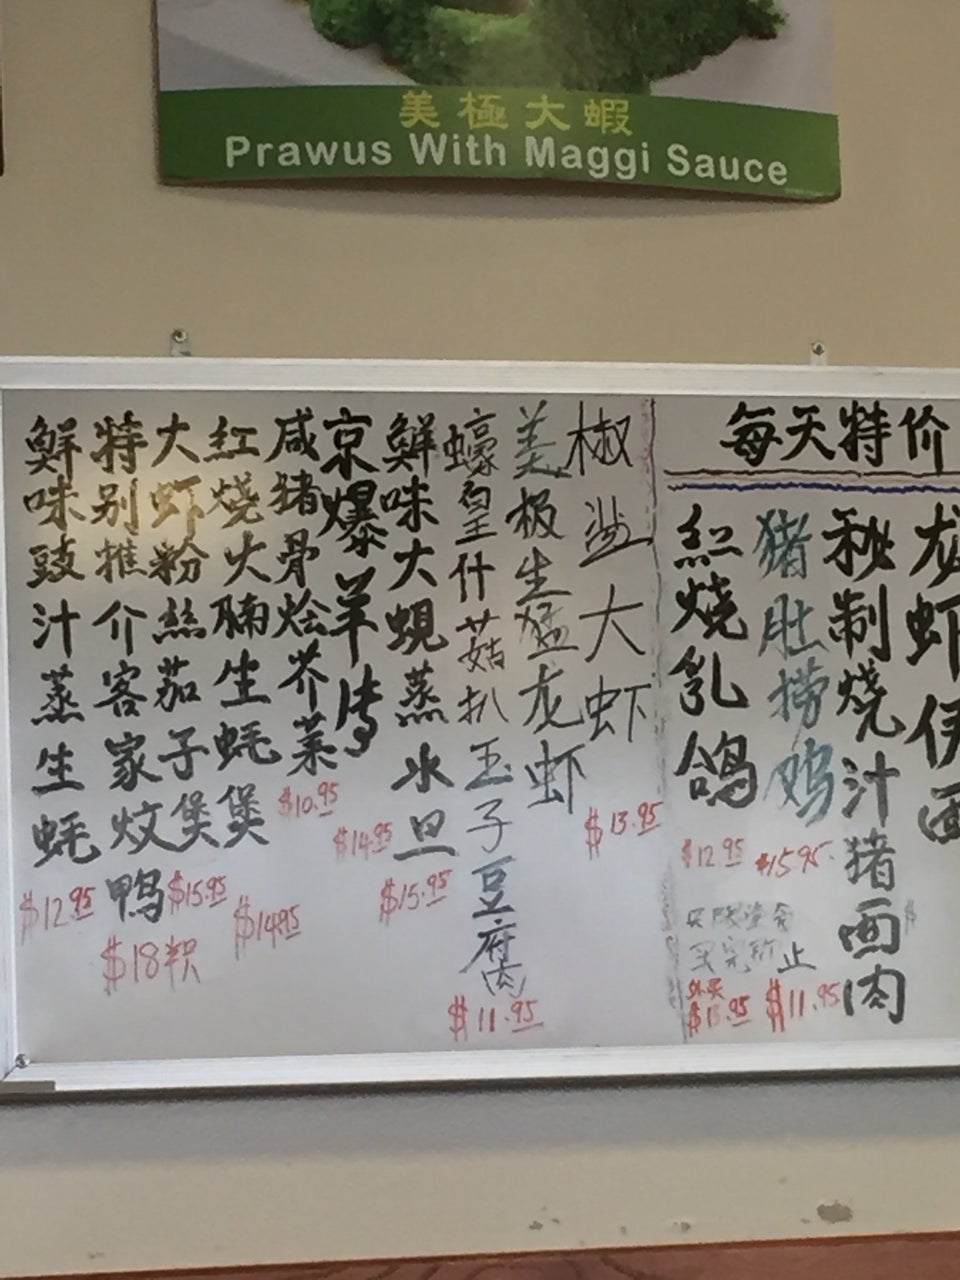 美極大蝦
Prawus With Maggi Sauce
椒
大虾
$13.95
美极生猛龙虾
蠔皇什菇扒玉子豆腐
$11.95
鮮味大蜆蒸水旦
$15.95
京爆羊
$14.95
咸猪骨烩芥菜
$10.95
红燒火腩生蚝煲
$14.95
大虾粉絲茄子煲
$15.95
特别推介客家炆鴨
$18
鮮味豉汁蒸生蚝
$12.95
每天特价
龙虾伊面
秘制燒汁猪面肉
$11.95
猪肚捞鸡
$15.95
紅燒乳鴿
$12.95
止
外卖
$13.95